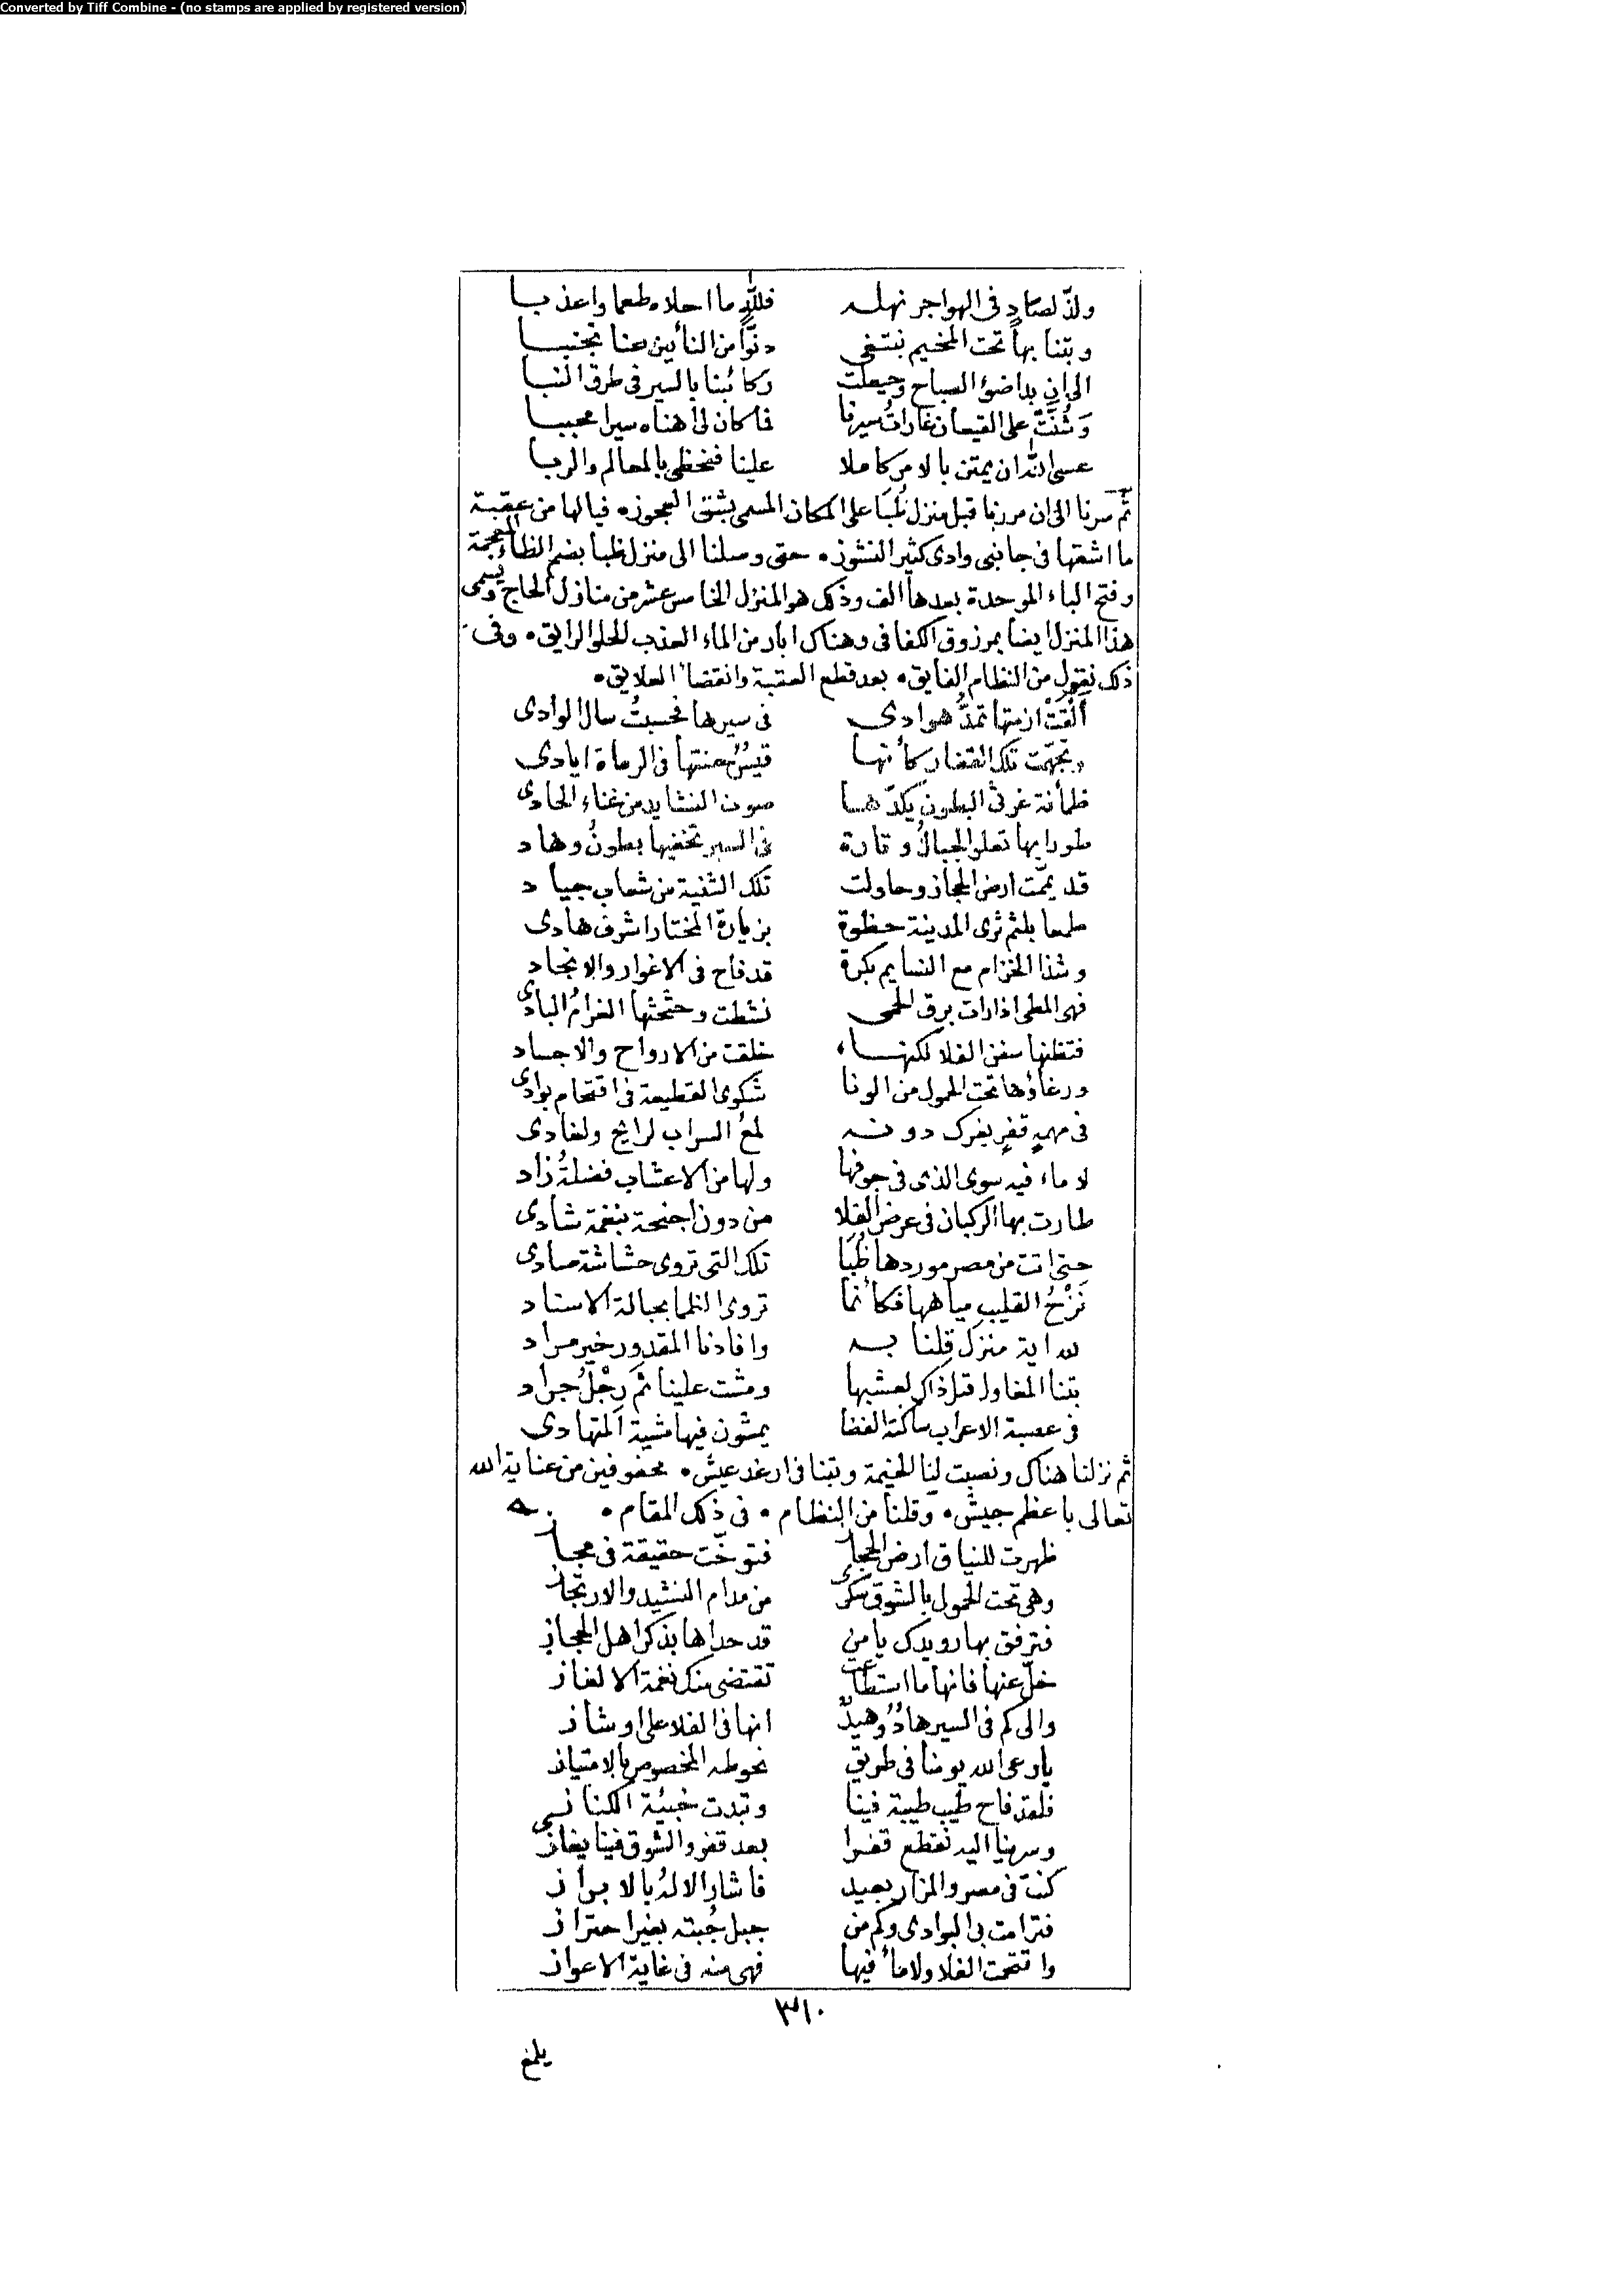 Converted by Tiff Combine - (no stamps are applied by registered version)
ولذّ لصادٍ في الهواجر نهله فللّه ما احلاه طعما واعذبا
وبتنا بها تحت المخيم نبتغي دنوّا من النأين عنا تجنبا
الى ان بدا ضوء الصباح وجيعلت ركائبنا بالسير في طرق النبا
وشُنّت على القيعان غارات سيرنا فاكان لى هناه سيرا محببا
عسى الله ان يمتن بالامر كاملا علينا فنحظى بالمعالم والربا
ثم سرنا الى ان مررنا قبل منزل ظُبَا على المكان المسمى بشق العجوز ۰ فيالها من عقبة
ما اشقها في جانبى وادى كثير النشوز ۰ حتى وصلنا الى منزل ظبا بضم الظاء المعجمة
وفتح الباء الموحدة بعدها الف وذلك هو المنزل الخامس عشر من منازل الحاج ويسمى
هذا المنزل ايضا بمرزوق الكفافى وهناك ابار من الماء العذب الحلو الرايق ۰ وفى
ذلك نقول من النظام الفايق ۰ بعد قطع العقبة وانقضا العلايق ۰
ألقَتْ ازمتها تمدُّ هوادى في سيرها فحسبتُ سال الوادى
وتجهّمت تلك القفار كأنها قيسُ عنتها فى الرماة ايادى
ظمأنة غرثى البطون يكدّها صوت النشايد من غناء الحادى
طورا بها تعلو الجبالُ وتارة في السير تخفيها بطونُ وهاد
قد يمّمت ارض الحجاز وحاولت تلك الثنية من شعاب جياد
طمعا بلثم ثرى المدينة حظوة بزيارة المختار اشرف هادى
وشذا الخزام مع النسايم بكرة قد فاح في الاغوار والانجاد
فهى المطى اذا رات برق الحمى نشطت وحثحثها الغرامُ البادى
فتظنها سفن الفلا لكنها خلقت من الارواح والاجساد
ورغاؤها تحت الحمول من الونا شكوى القطيعة فى اقتحام بوادى
في مهمهٍ قفرٍ يغرك دونه لمعُ السراب لرايح ولغادى
لا ماء فيه سوى الذى في جوفها ولها من الاعشاب فضلةُ زاد
طارت بها الركبان فى عرض الفلا من دون اجنحة بنغمة شادى
حتى اتت من مصر موردها ظُبَا تلك التى تروى حشاشة صادى
نَزْحُ القليب مياهها فكأنما تروى الظما بحبالة الاسناد
لله اية منزل قِلنا به وافادنا المقدور خير مراد
بتنا المغاول قبل ذاك لعشبها ومشت علينا ثَم رِجْلُ جراد
في عصبة الاعراب ساكنة الفضا يمشون فيها مشية المتهادى
ثم نزلنا هناك ونصبت لنا الخيمة وبتنا فى ارغد عيش ۰ محفوفين من عناية الله
تعالى باعظم جيش ۰ وقلنا من النظام ۰ فى ذلك المقام ۰
ظهرت للنياق ارض الحجاز فتوخّت حقيقة فى مجاز
وهى تحت الحمول بالشوق سكرى من مدام النشيد والارتجاز
فترفق بها رويدك يا من قد حداها بذكر اهل الحجاز
خلّ عنها فانها ما استطاعت تقتضى منك نغمة الالغاز
والى كم فى السير هادٌ وهيدٌ انها فى الفلا على اوشاز
يا رعى الله يومنا فى طريق نحو طه المخصوص بالامتياز
فلقد فاح طيب طيبة فينا وتبدت خبيئة الكناز
وسرينا اليه نقطع قفرا بعد قفر والشوق فينا يغازى
كنت فى مصر والمزار بعيد فاشار الالهُ بالابراز
فترامت بى البوادى وكم من جبل جُبته بغير احتراز
واقتحمت الفلا ولا ماءً فيها فهى منه فى غاية الاعواز
٣١٠
يلمغ